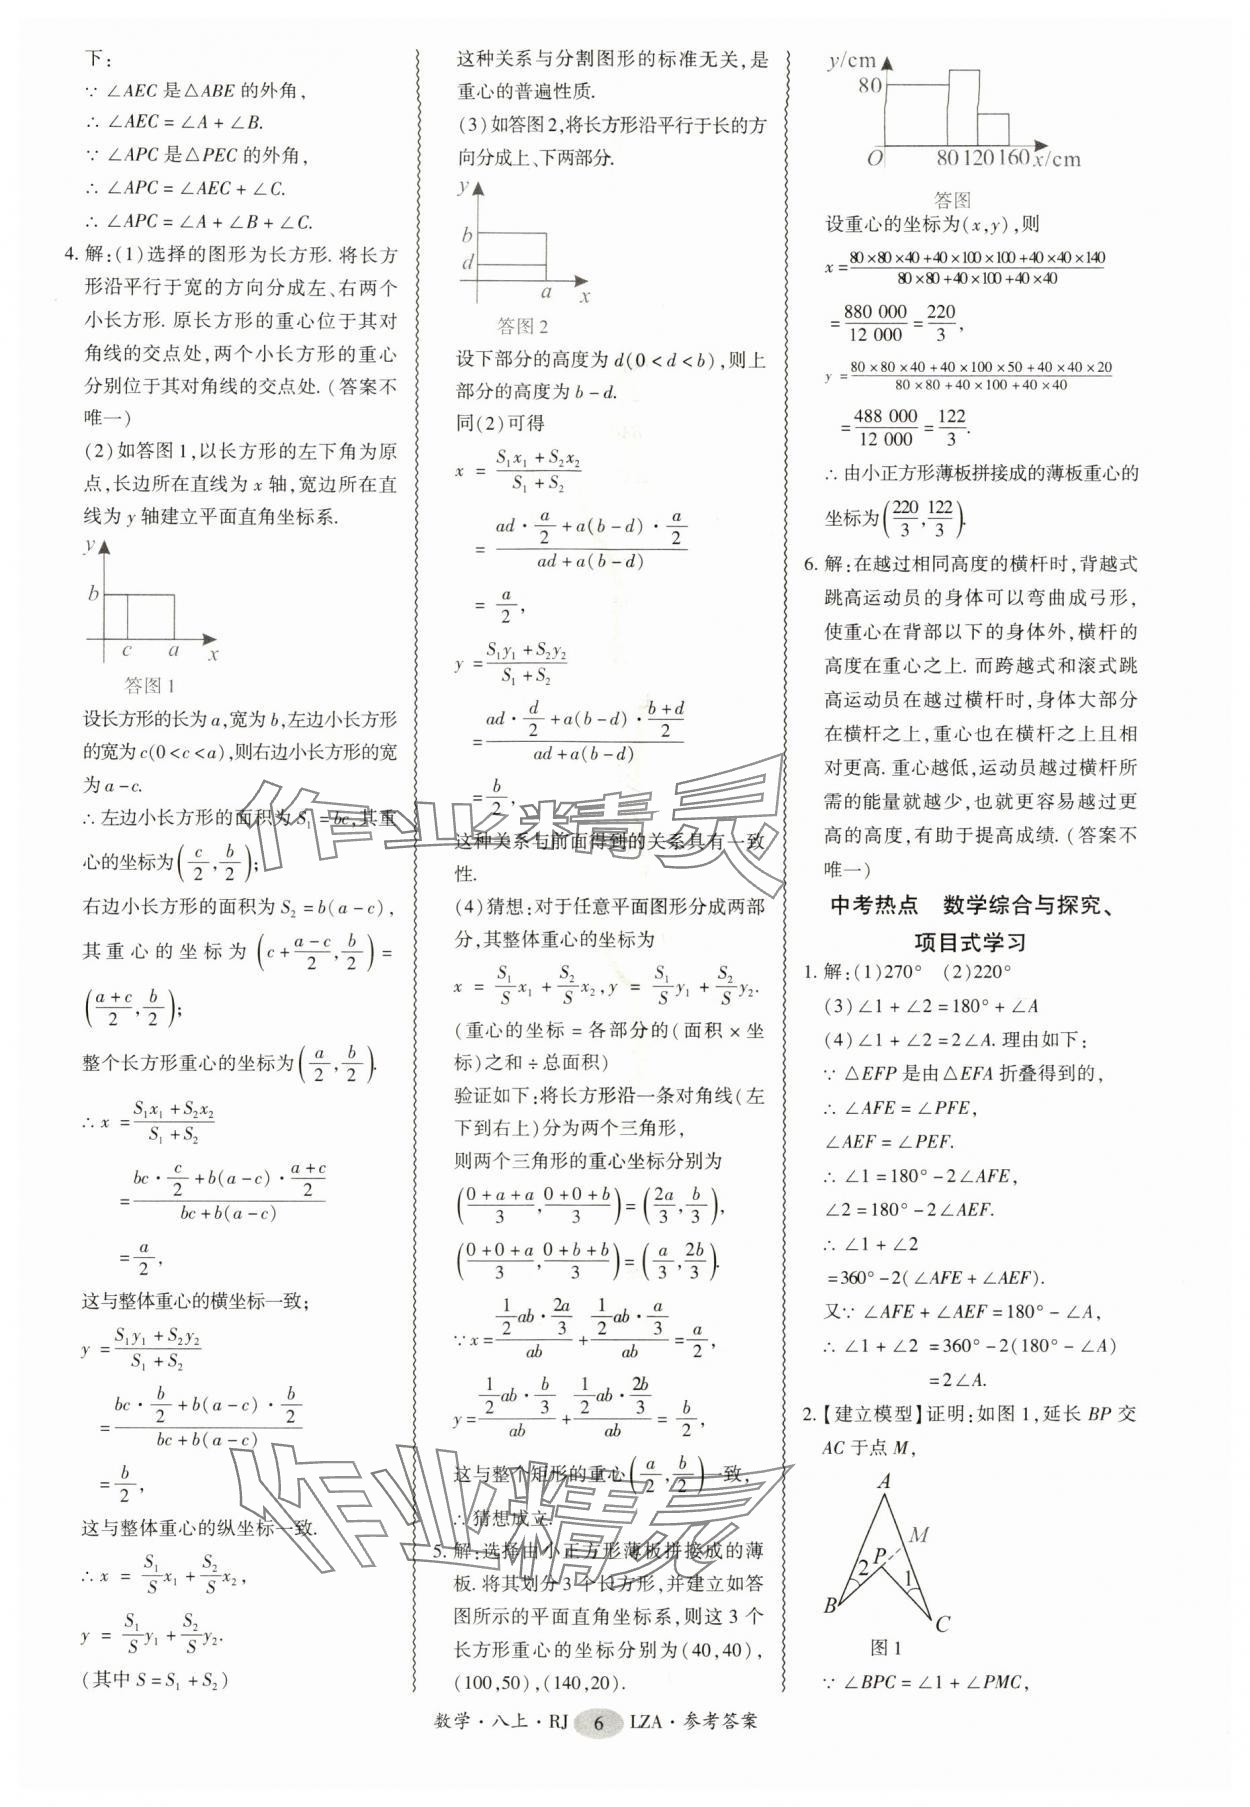 下:
∵ ∠AEC 是△ABE 的外角,
∴ ∠AEC = ∠A + ∠B.
∵ ∠APC 是△PEC 的外角,
∴ ∠APC = ∠AEC + ∠C.
∴ ∠APC = ∠A + ∠B + ∠C.
4. 解:(1)选择的图形为长方形. 将长方
形沿平行于宽的方向分成左、右两个
小长方形. 原长方形的重心位于其对
角线的交点处,两个小长方形的重心
分别位于其对角线的交点处. (答案不
唯一)
(2)如答图1,以长方形的左下角为原
点,长边所在直线为 x 轴,宽边所在直
线为 y 轴建立平面直角坐标系.
y
b
c a x
答图 1
设长方形的长为 a,宽为 b,左边小长方形
的宽为 c(0 < c < a),则右边小长方形的宽
为 a - c.
∴ 左边小长方形的面积为 S₁ = bc,其重
心的坐标为(c/2, b/2);
右边小长方形的面积为 S₂ = b(a - c),
其重心的坐标为 (c + (a-c)/2, b/2) =
((a+c)/2, b/2);
整个长方形重心的坐标为(a/2, b/2).
∴ x = (S₁x₁ + S₂x₂)/(S₁ + S₂)
= (bc · c/2 + b(a - c) · (a+c)/2)/(bc + b(a - c))
= a/2,
这与整体重心的横坐标一致;
y = (S₁y₁ + S₂y₂)/(S₁ + S₂)
= (bc · b/2 + b(a - c) · b/2)/(bc + b(a - c))
= b/2,
这与整体重心的纵坐标一致.
∴ x = S₁/S x₁ + S₂/S x₂,
y = S₁/S y₁ + S₂/S y₂.
(其中 S = S₁ + S₂)
这种关系与分割图形的标准无关,是
重心的普遍性质.
(3)如答图2,将长方形沿平行于长的方
向分成上、下两部分.
y
b
d
a x
答图 2
设下部分的高度为 d(0 < d < b),则上
部分的高度为 b - d.
同(2)可得
x = (S₁x₁ + S₂x₂)/(S₁ + S₂)
= (ad · a/2 + a(b - d) · a/2)/(ad + a(b - d))
= a/2,
y = (S₁y₁ + S₂y₂)/(S₁ + S₂)
= (ad · d/2 + a(b - d) · (b+d)/2)/(ad + a(b - d))
= b/2,
这种关系与前面得到的关系具有一致
性.
(4)猜想:对于任意平面图形分成两部
分,其整体重心的坐标为
x = S₁/S x₁ + S₂/S x₂, y = S₁/S y₁ + S₂/S y₂.
(重心的坐标 = 各部分的(面积 × 坐
标)之和 ÷ 总面积)
验证如下:将长方形沿一条对角线(左
下到右上)分为两个三角形,
则两个三角形的重心坐标分别为
((0+a+a)/3, (0+0+b)/3) = (2a/3, b/3),
((0+0+a)/3, (0+b+b)/3) = (a/3, 2b/3).
∵ x = (1/2 ab · 2a/3)/ab + (1/2 ab · a/3)/ab = a/2,
y = (1/2 ab · b/3)/ab + (1/2 ab · 2b/3)/ab = b/2,
这与整个矩形的重心(a/2, b/2)一致,
∴ 猜想成立.
5. 解:选择由小正方形薄板拼接成的薄
板. 将其划分3个长方形,并建立如答
图所示的平面直角坐标系,则这 3 个
长方形重心的坐标分别为(40,40),
(100,50),(140,20).
y/cm
80
O 80 120 160 x/cm
答图
设重心的坐标为(x,y),则
x = (80×80×40+40×100×100+40×40×140)/(80×80+40×100+40×40)
= 880 000/12 000 = 220/3,
y = (80×80×40+40×100×50+40×40×20)/(80×80+40×100+40×40)
= 488 000/12 000 = 122/3.
∴ 由小正方形薄板拼接成的薄板重心的
坐标为(220/3, 122/3).
6. 解:在越过相同高度的横杆时,背越式
跳高运动员的身体可以弯曲成弓形,
使重心在背部以下的身体外,横杆的
高度在重心之上. 而跨越式和滚式跳
高运动员在越过横杆时,身体大部分
在横杆之上,重心也在横杆之上且相
对更高. 重心越低,运动员越过横杆所
需的能量就越少,也就更容易越过更
高的高度,有助于提高成绩. (答案不
唯一)
中考热点 数学综合与探究、
项目式学习
1. 解:(1)270° (2)220°
(3)∠1 + ∠2 = 180° + ∠A
(4)∠1 + ∠2 = 2∠A. 理由如下:
∵ △EFP 是由△EFA 折叠得到的,
∴ ∠AFE = ∠PFE,
∠AEF = ∠PEF.
∴ ∠1 = 180° - 2∠AFE,
∠2 = 180° - 2∠AEF.
∴ ∠1 + ∠2
= 360° - 2(∠AFE + ∠AEF).
又∵ ∠AFE + ∠AEF = 180° - ∠A,
∴ ∠1 + ∠2 = 360° - 2(180° - ∠A)
= 2∠A.
2. 【建立模型】证明:如图 1,延长 BP 交
AC 于点 M,
A
M
P
2
1
B
C
图 1
∵ ∠BPC = ∠1 + ∠PMC,
数学·八上·RJ 6 LZA·参考答案
作业精灵
作业精灵